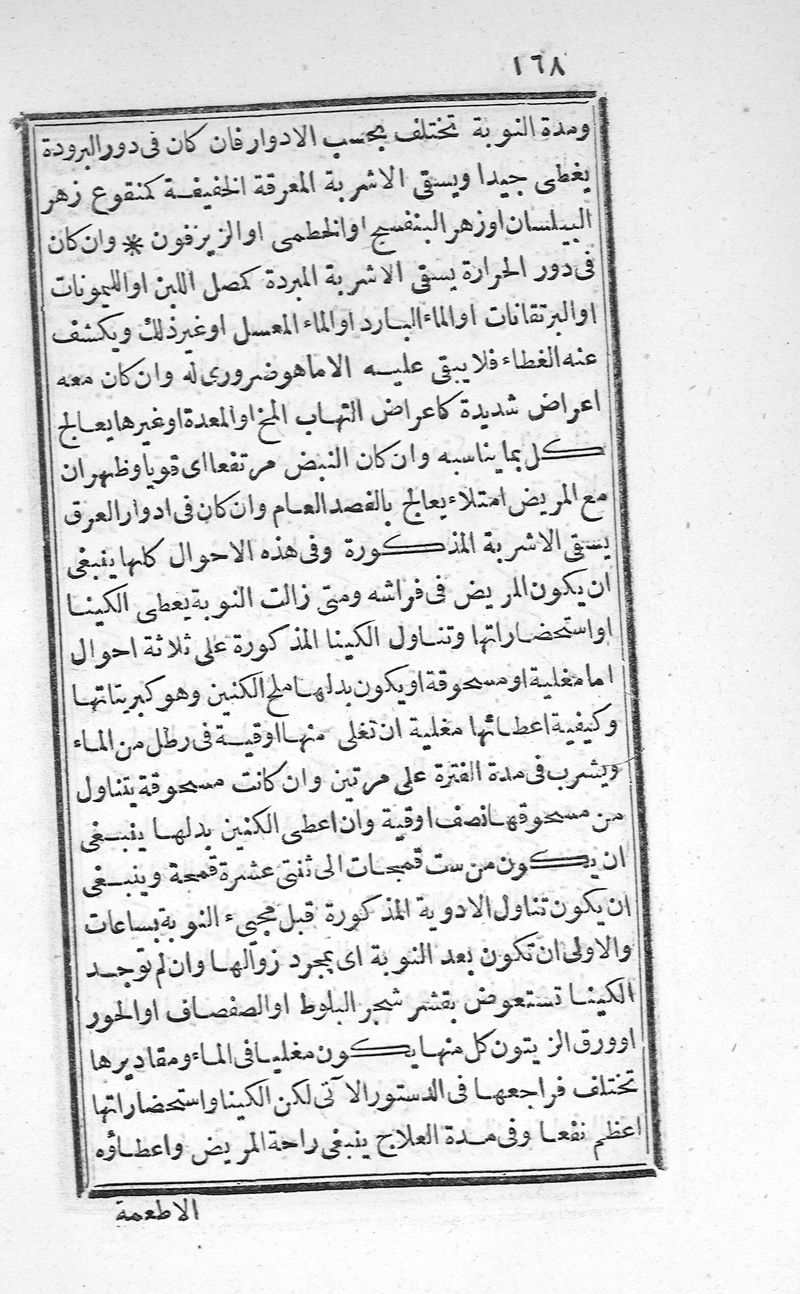 ١٦٨
ومدة النوبة تختلف بحسب الادوار فان كان فى دور البرودة
يغطى جيدا ويسقى الاشربة المعرقة الخفيفة كمنقوع زهر
البيلسان اوزهر البنفسج اوالخطمى اوالزيزفون * وان كان
فى دور الحرارة يسقى الاشربة المبردة كمصل اللبن اوالليمونات
اوالبرتقانات اوالماء البارد اوالماء المعسل اوغير ذلك ويكشف
عنه الغطاء فلا يبقى عليه الا ماهو ضرورى له وان كان معه
اعراض شديدة كاعراض التهاب المخ اوالمعدة اوغيرها يعالج
كل بما يناسبه وان كان النبض مرتفعا اى قويا وظهر ان
مع المريض امتلاء يعالج بالفصد العام وان كان فى ادوار العرق
يسقى الاشربة المذكورة وفى هذه الاحوال كلها ينبغى
ان يكون المريض فى فراشه ومتى زالت النوبة يعطى الكينا
اواستحضاراتها وتناول الكينا المذكورة على ثلاثة احوال
اما مغلية اومسحوقة اويكون بدلها ملح الكنين وهو كبريتاتها
وكيفية اعطائها مغلية ان تغلى منها اوقية فى رطل من الماء
ويشرب فى مدة الفترة على مرتين وان كانت مسحوقة يتناول
من مسحوقها نصف اوقية وان اعطى الكنين بدلها ينبغى
ان يكون من ست قمحات الى ثنتى عشرة قمحة وينبغى
ان يكون تناول الادوية المذكورة قبل مجىء النوبة بساعات
والاولى ان تكون بعد النوبة اى بمجرد زوالها وان لم توجد
الكينا تستعوض بقشر شجر البلوط اوالصفصاف اوالحور
اوورق الزيتون كل منها يكون مغليا فى الماء ومقاديرها
تختلف فراجعها فى الدستور الآتى لكن الكينا واستحضاراتها
اعظم نفعا وفى مدة العلاج ينبغى راحة المريض واعطاؤه
الاطعمة